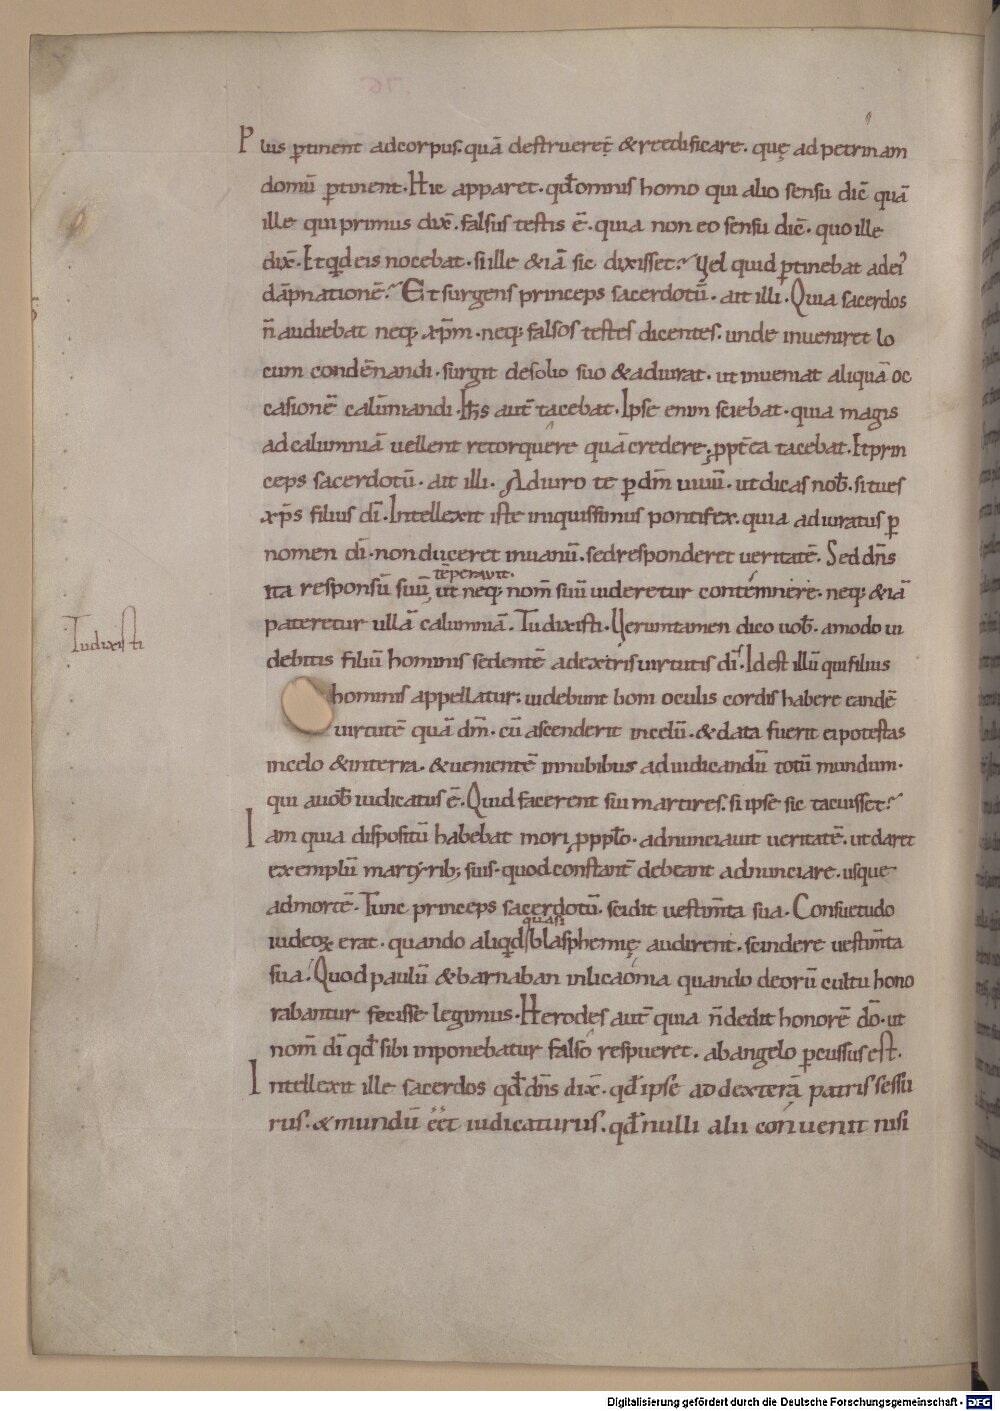 Plus ꝑtinent adcorpus. quā destrueret̄ &reedificare. quę ad petrinam
domū ꝑtinent. Hic apparet. qd̄ omnis homo qui alio sensu dic̄ quā
ille qui primus dix̄. falsus testis ē. quia non eo sensu dic̄. quo ille
dix̄. Et qd eis nocebat. si ille &iā sic dixisset? Vel quid ꝑtinebat ad ei'
dāpnationē? Et surgens princeps sacerdotū. ait illi. Quia sacerdos
n̄ audiebat neq; xp̄m. neq; falsos testes dicentes. unde inueniret lo
cum condēnandi. surgit desolio suo &adiurat. ut inueniat aliquā oc
casionē calūniandi. Ih̄s aut̄ tacebat. Ipse enim sciebat. quia magis
ad calumniā uellent retorquere quā credere. ꝓpt̄ea tacebat. Et prin
ceps sacerdotū. ait illi. Adiuro te ꝑ dm̄ uiuū. ut dicas nob̄. si tu es
xp̄s filius dī. Intellexit iste iniquissimus pontifex. quia adiuratus ꝑ
nomen dī. non duceret inuanū. sed responderet ueritatē. Sed dn̄s
tēperauit.
ita responsū suū, ut neq; nom̄ suū uideretur contemnere. neq; &iā
pateretur ullā calumniā. Tu dixisti. Veruntamen dico uob̄. amodo ui
Tu dixisti
debitis filiū hominis sedentē adextris uirtutis dī. Id est illū qui filius
hominis appellatur; uidebunt boni oculis cordis habere eandē
uirtutē quā dm̄. cū ascenderit in celū. & data fuerit ei potestas
in celo & in terra. & uenientē in nubibus ad iudicandū totū mundum.
qui a uob̄ iudicatus ē. Quid facerent sui martires. si ipse sic tacuisset?
Iam quia dispositū habebat mori ꝓ pplo. adnunciauit ueritatē. ut daret
exemplū martyrib; suis. quod constant̄ debeant adnunciare. usque
ad mortē. Tunc princeps sacerdotū. scidit uestim̄ta sua. Consuetudo
quasi
iudeoꝝ erat. quando aliqd blasphemię audirent. scindere uestim̄ta
sua. Quod paulū & barnaban in licaonia quando deorū cultu hono
rabantur fecisse legimus. Herodes aut̄ quia n̄ dedit honorē dō. ut
nom̄ dī qd̄ sibi inponebatur falso respueret. ab angelo ꝑcussus est.
Intellexit ille sacerdos qd̄ dn̄s dix̄. qd̄ ipse ad dexterā patris sessu
rus. & mundū eet iudicaturus. qd̄ nulli alii conuenit nisi
Digitalisierung gefördert durch die Deutsche Forschungsgemeinschaft - DFG